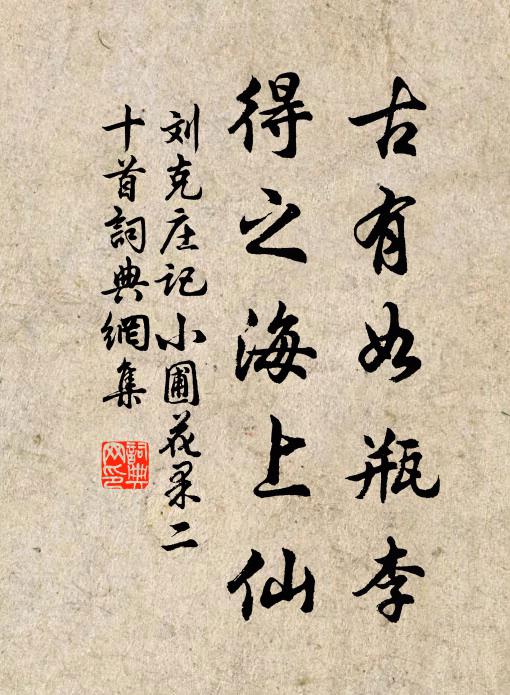 古有如瓶李
得之海上仙
刘克庄记小圃花果二
十首詞典網集
詞典
网印